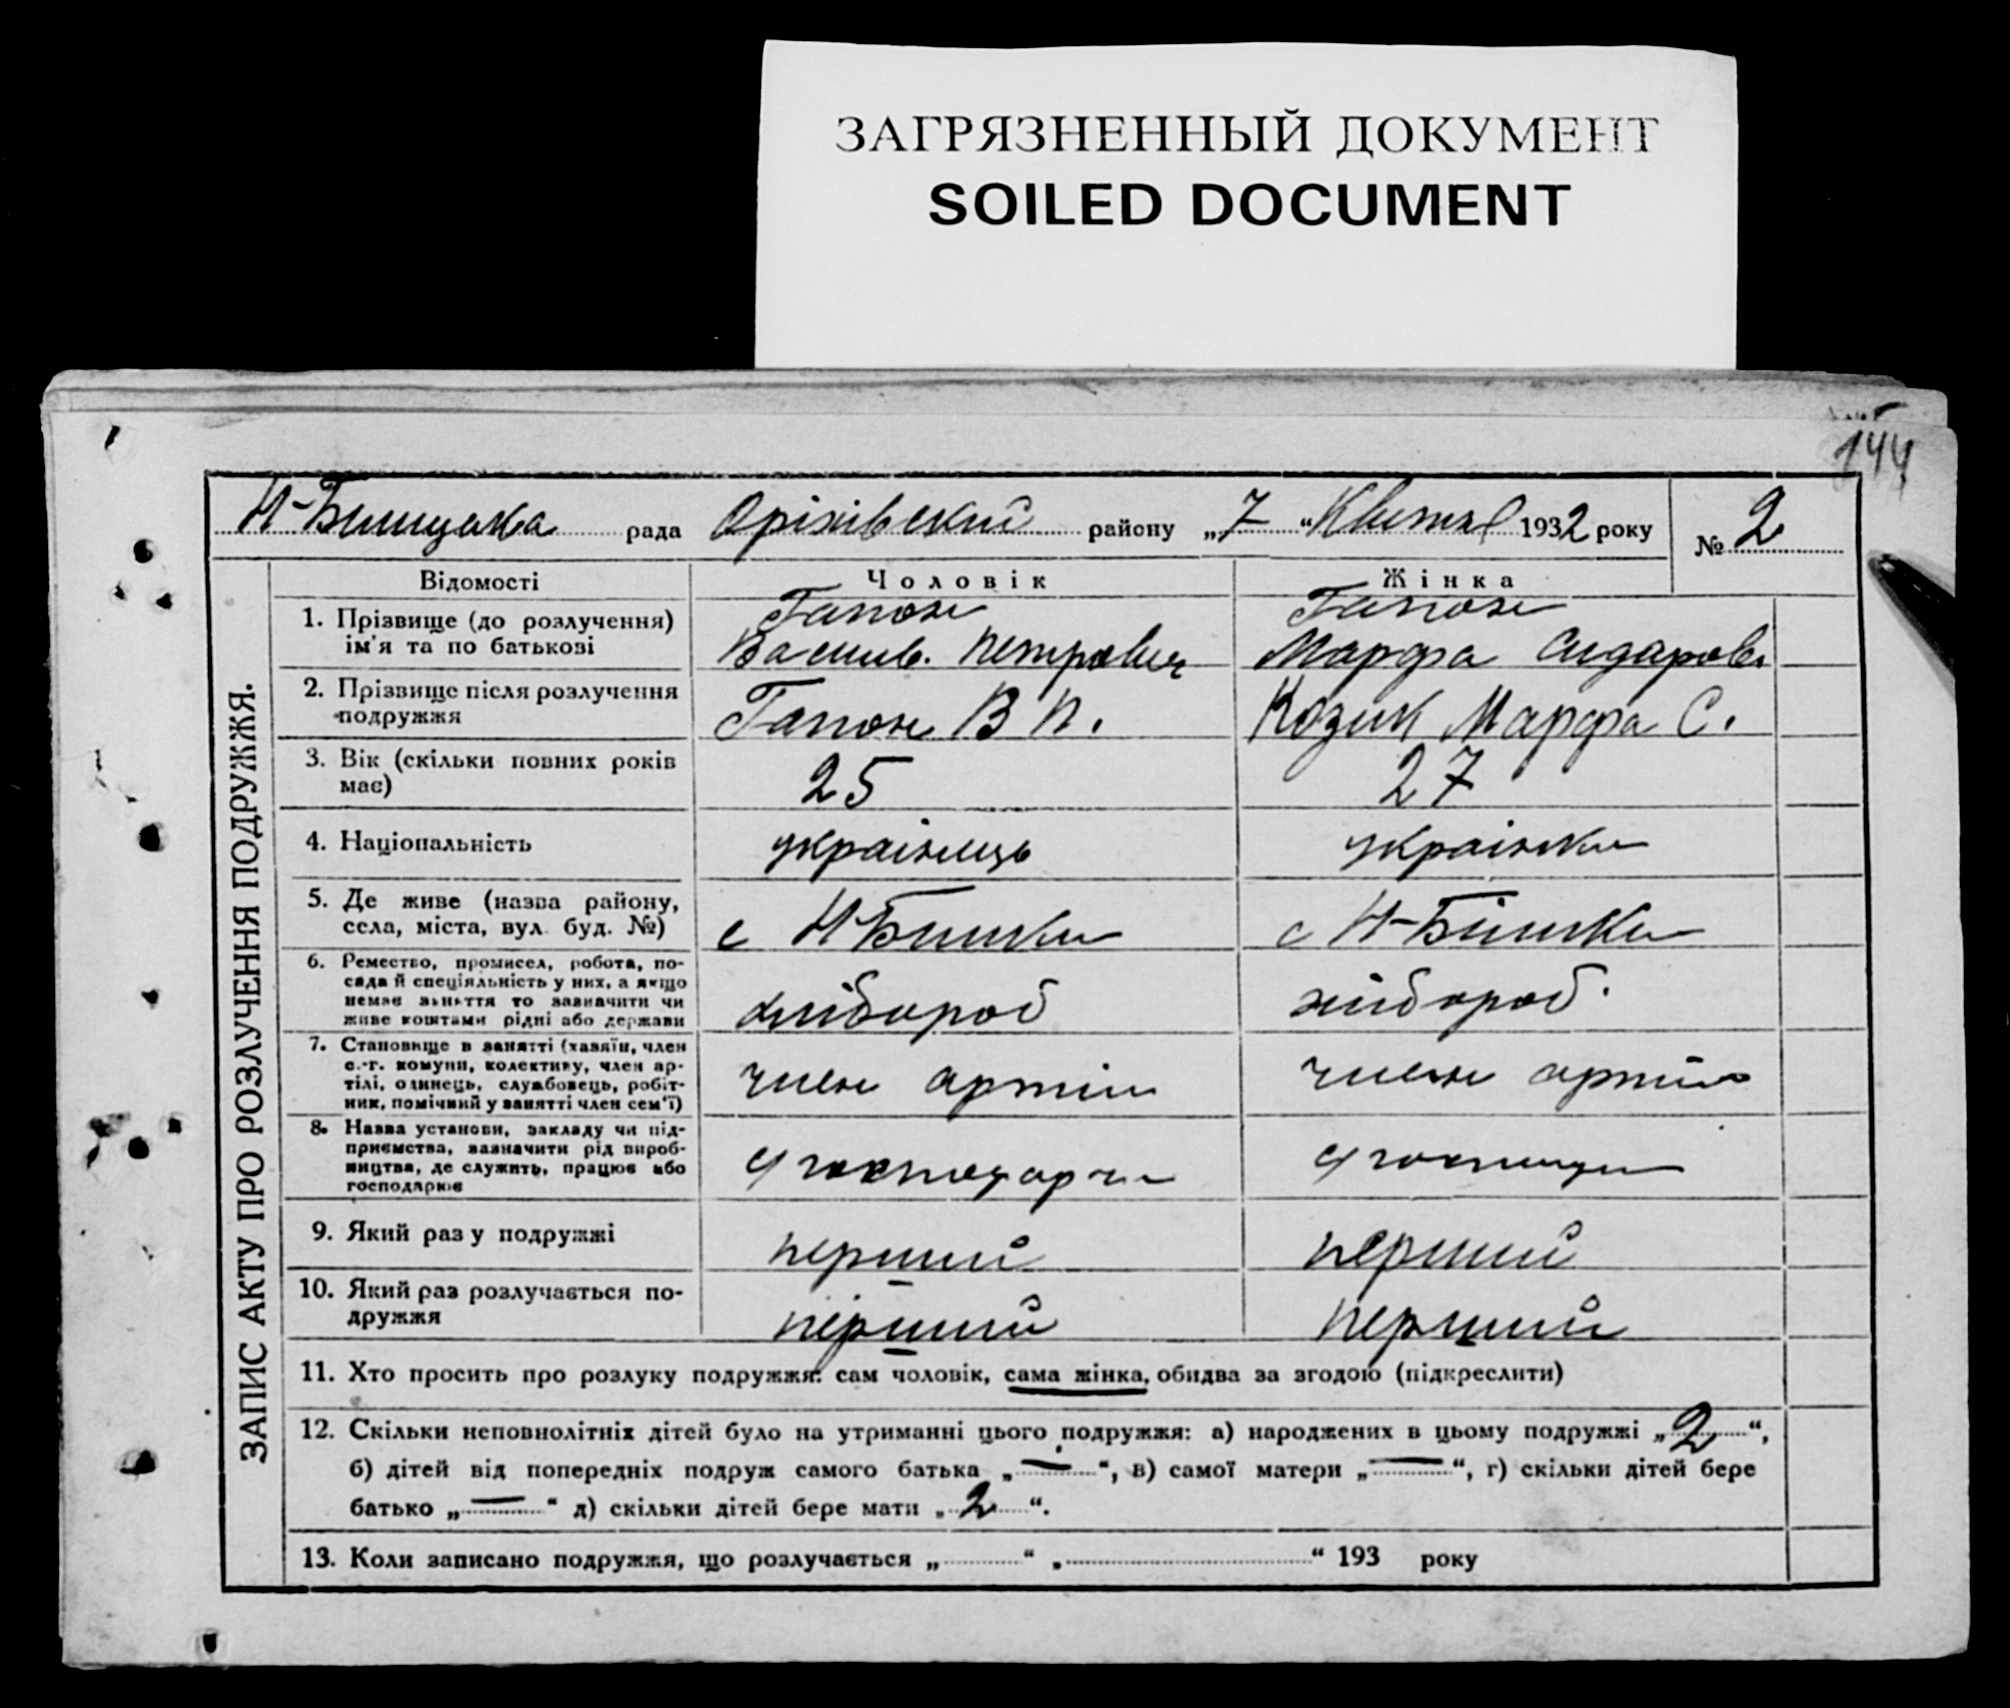 ЗАГРЯЗНЕННЫЙ ДОКУМЕНТ
SOILED DOCUMENT
144
Н-Бишцька рада Оріхівский району „7“ Квітня 1932 року № 2
ЗАПИС АКТУ ПРО РОЗЛУЧЕННЯ ПОДРУЖЖЯ.
Відомості Чоловік Жінка
1. Прізвище (до розлучення) Гапон Гапон
ім'я та по батькові Васил. Петрович Марфа Сидарові
2. Прізвище після розлучення
подружжя Гапон В П. Козик Марфа С.
3. Вік (скільки повних років
має) 25 27
4. Національність українець українка
5. Де живе (назва району,
села, міста, вул. буд. №) с Н-Бишки с Н-Бішки
6. Ремество, промисел, робота, по-
сада й спеціяльність у них, а якщо
немає заняття то зазначити чи
живе коштами рідні або держави хлібороб хлібороб.
7. Становище в занятті (хазяїн, член
с.-г. комуни, колективу, член ар-
тілі, одинець, службовець, робіт-
ник, помічний у занятті член сем'ї) член артіли член артіли
8. Назва установи, закладу чи під-
приємства, зазначити рід вироб-
ництва, де служить, працює або
господарює
9. Який раз у подружжі перший перший
10. Який раз розлучається по-
дружжя перший перший
11. Хто просить про розлуку подружжя: сам чоловік, сама жінка, обидва за згодою (підкреслити)
12. Скільки неповнолітніх дітей було на утриманні цього подружжя: а) народжених в цьому подружжі „2“,
б) дітей від попередніх подруж самого батька „—“, в) самої матери „—“, г) скільки дітей бере
батько „—“ д) скільки дітей бере мати „2“.
13. Коли записано подружжя, що розлучається „ “ „ “ 193 року